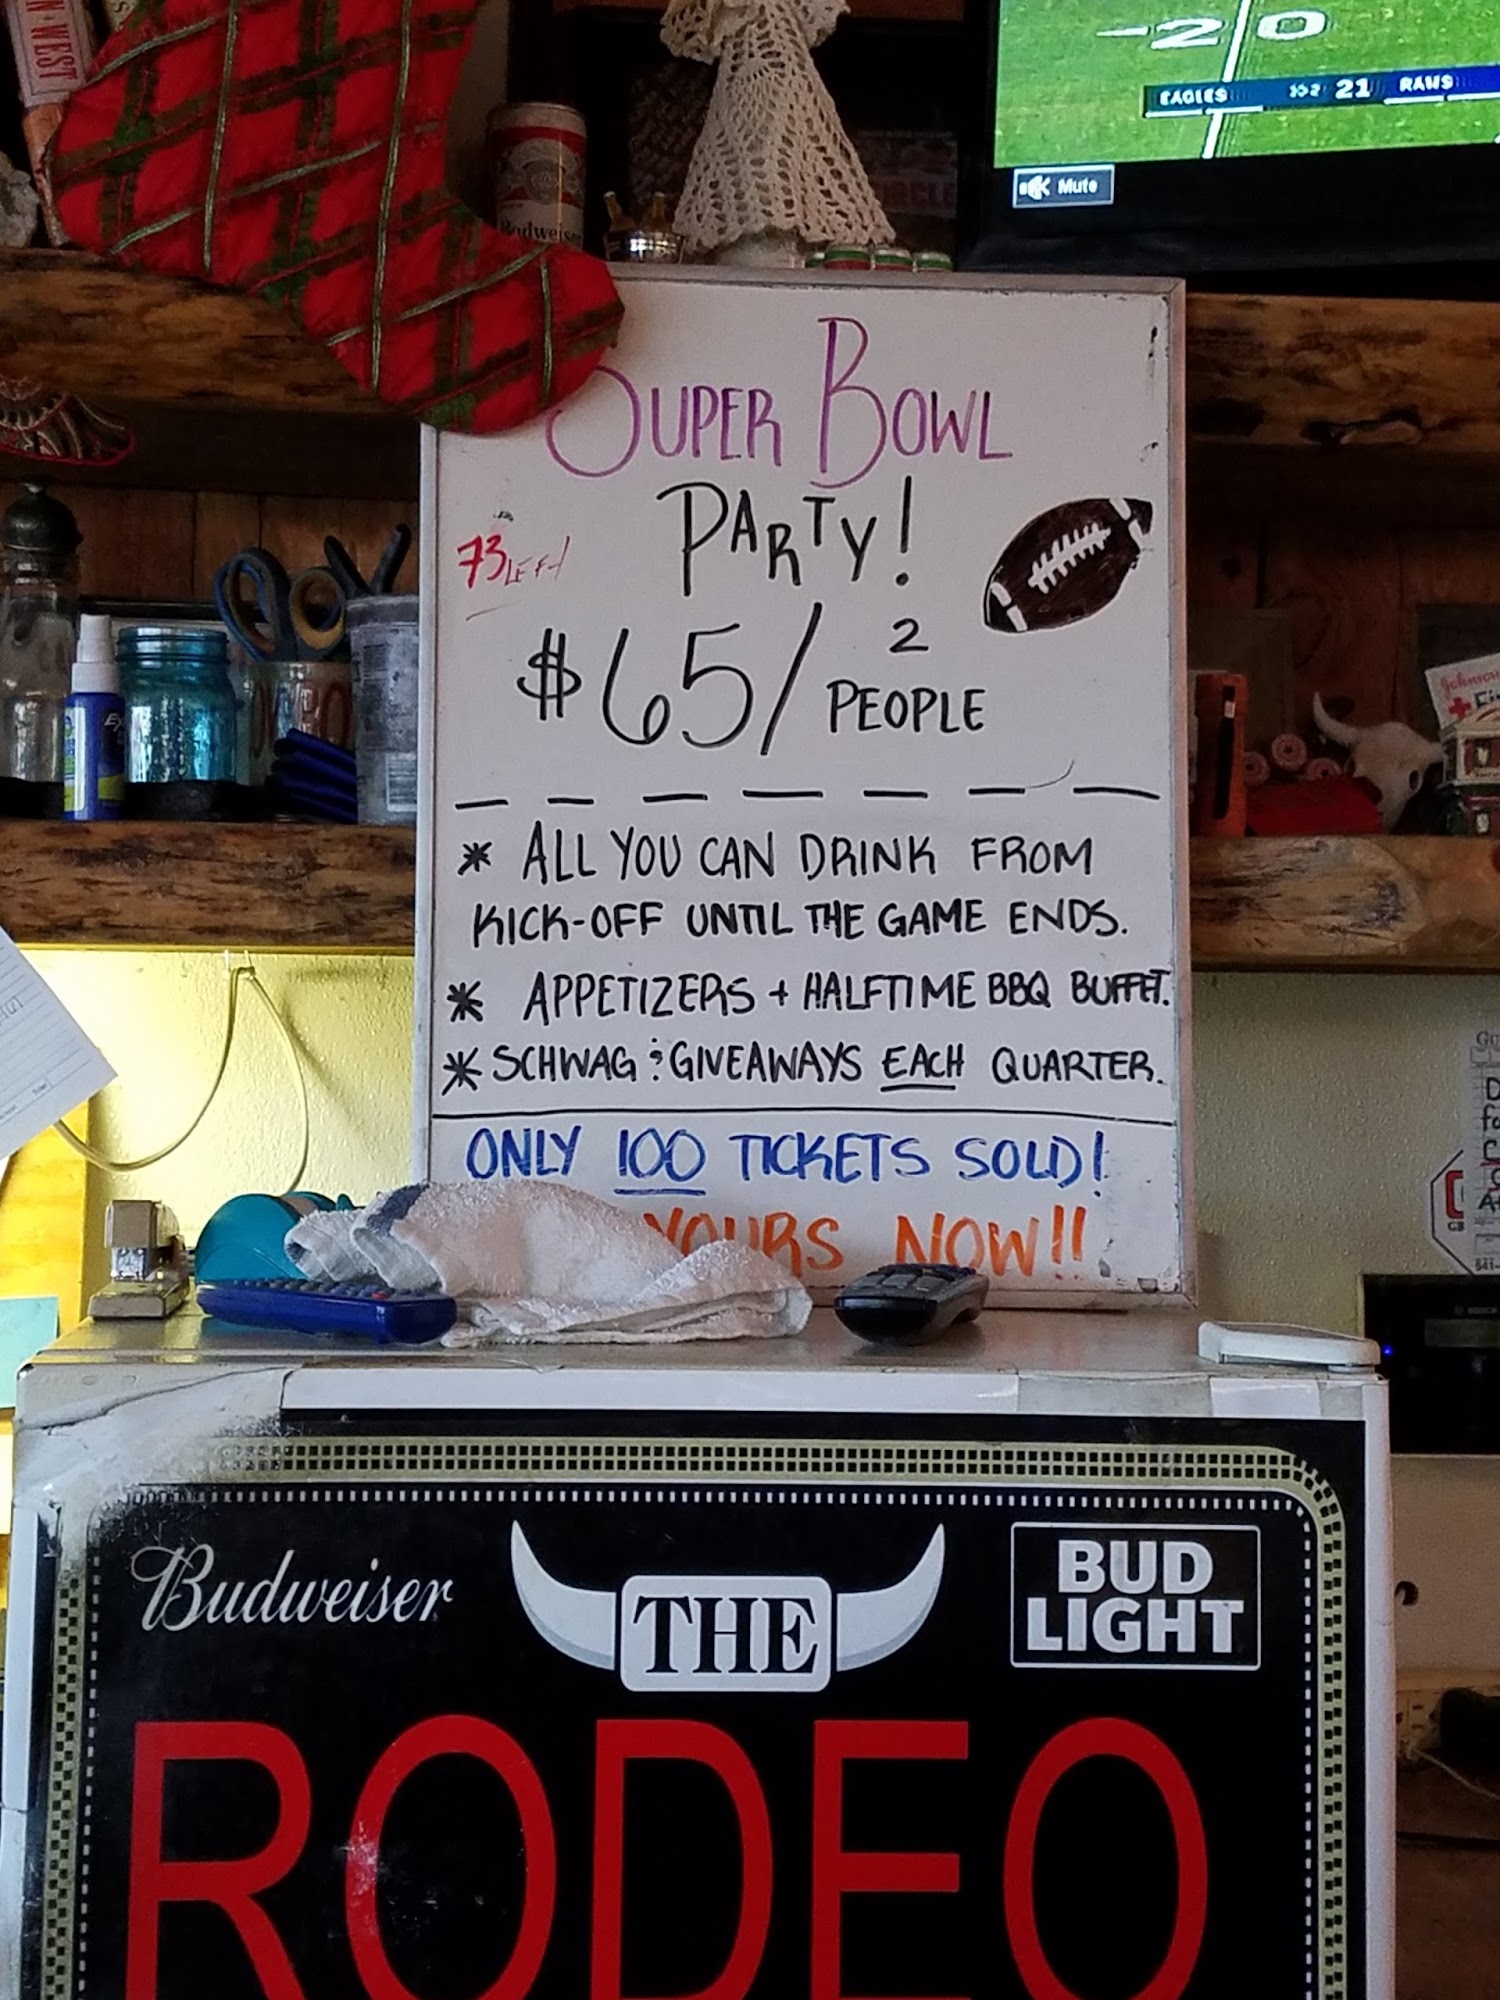 WEST
Budweiser
20
EAGLES 21 RAMS
Mute
SUPER BOWL
PARTY!
73 LEFT
$65/2 PEOPLE
* ALL YOU CAN DRINK FROM
KICK-OFF UNTIL THE GAME ENDS.
* APPETIZERS + HALFTIME BBQ BUFFET.
* SCHWAG & GIVEAWAYS EACH QUARTER.
ONLY 100 TICKETS SOLD!
YOURS NOW!!
Budweiser
THE
BUD
LIGHT
RODEO